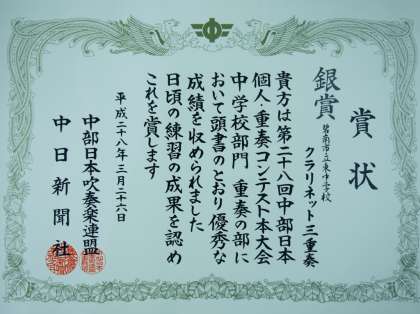 賞状
銀賞
碧南市立東中学校
クラリネット三重奏
貴方は第二十八回中部日本
個人・重奏コンテスト本大会
中学校部門 重奏の部に
おいて頭書のとおり優秀な
成績を収められました
日頃の練習の成果を認め
これを賞します
平成二十八年三月二十六日
中部日本吹奏楽連盟
中日新聞社